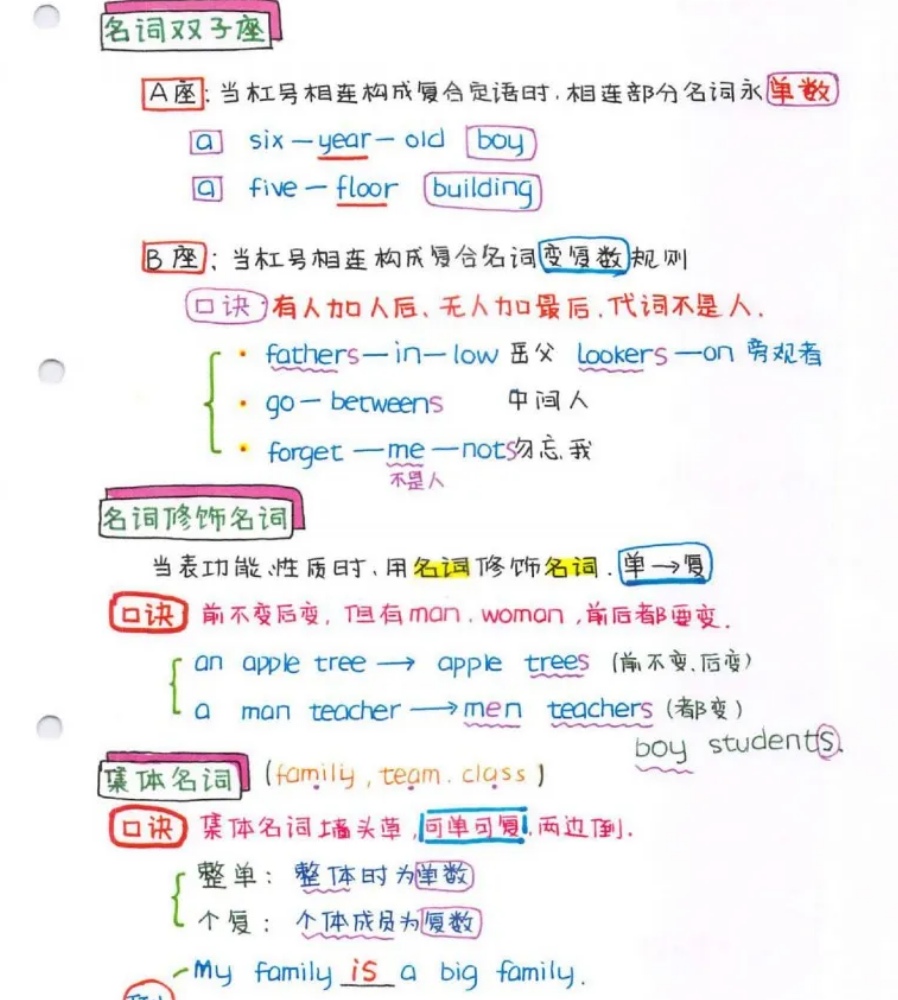 名词双子座
A座：当杠号相连构成复合定语时，相连部分名词永单数
a six-year-old boy
a five-floor building
B座：当杠号相连构成复合名词变复数规则
口诀：有人加人后、无人加最后，代词不是人．
· fathers-in-low 岳父 lookers-on 旁观者
· go-betweens 中间人
· forget-me-nots 勿忘我
不是人
名词修饰名词
当表功能、性质时、用名词修饰名词．单→复
口诀 前不变后变，但有man．woman，前后都要变．
an apple tree → apple trees (前不变.后变)
a man teacher → men teachers (都变)
boy students.
集体名词 (family, team. class)
口诀 集体名词墙头草，可单可复，两边倒．
整单：整体时为单数
个复：个体成员为复数
My family is a big family.